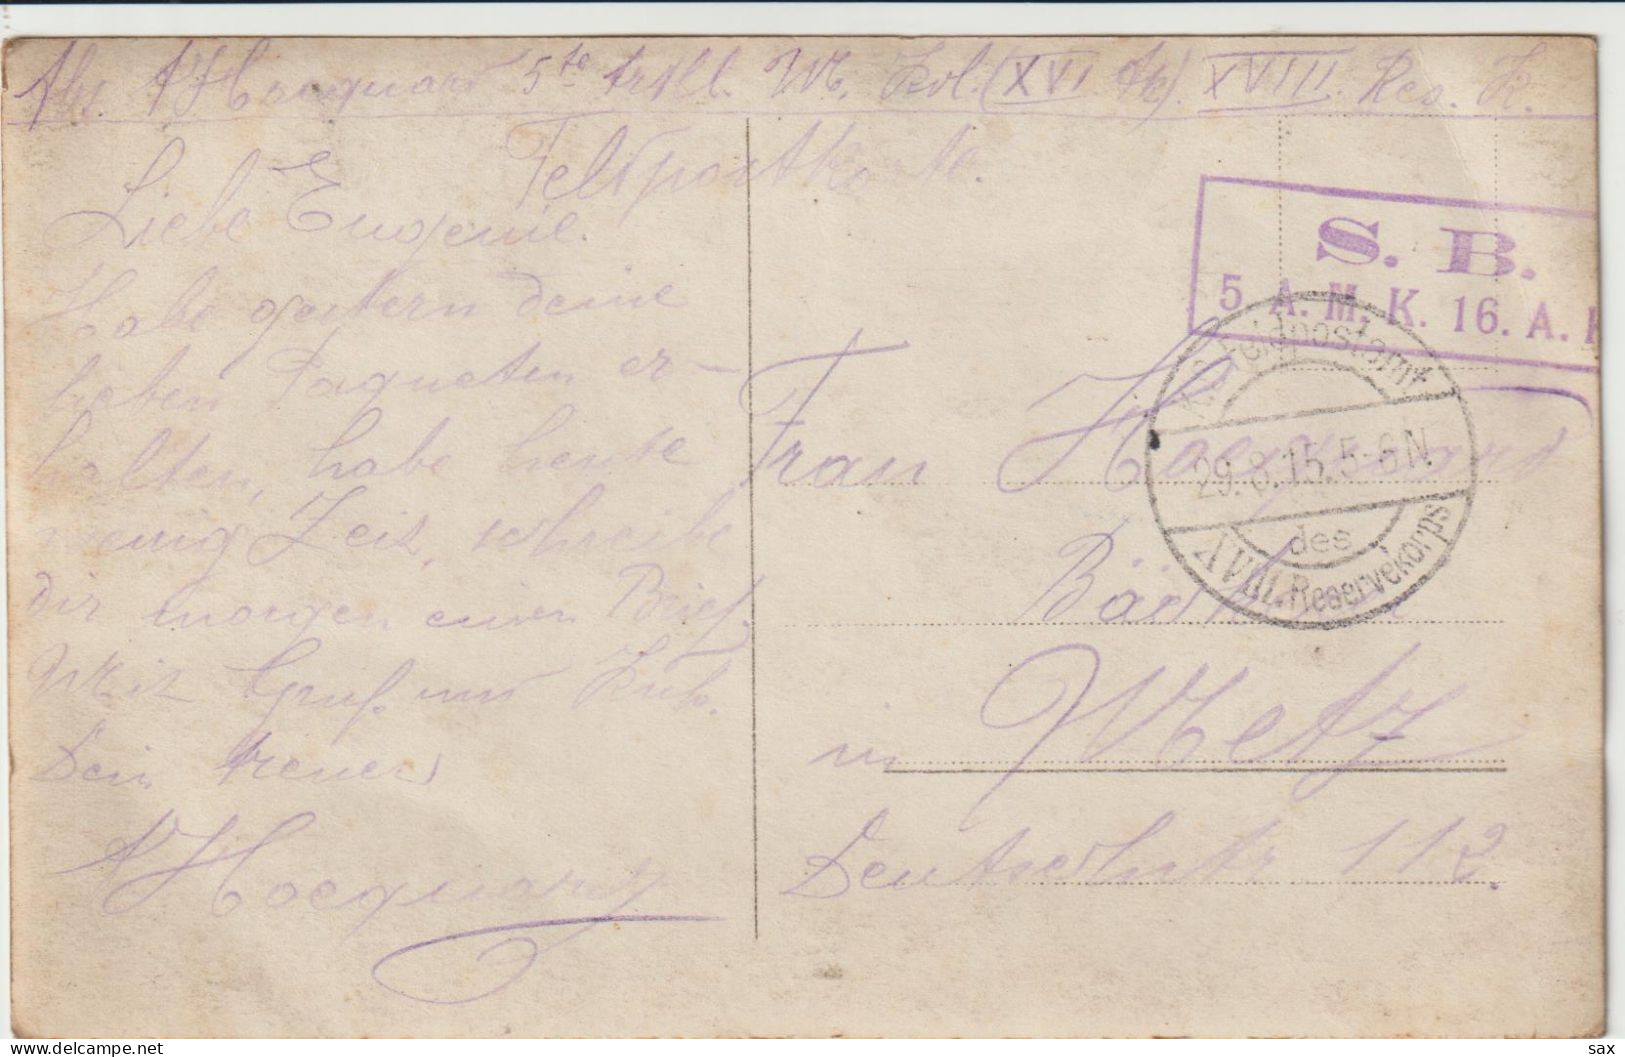 Abs. A Hocquard 5te Artill. M. Kol. (XVI. Ak). XVIII. Res. K.
Feldpostkarte.
Liebe Eugenie.
Habe gestern deine
lieben Paqueten er-
halten, habe heute
wenig Zeit, schreibe
dir morgen einen Brief.
Mit Gruß und Kuß.
Dein treuer
A Hocquard
S. B.
5. A. M. K. 16. A. K
K.D. Feldpostamt
29.8.15. 5-6 N.
des
XVIII. Reservekorps
Frau Hocquard
in Metz
Deutschstr 112.